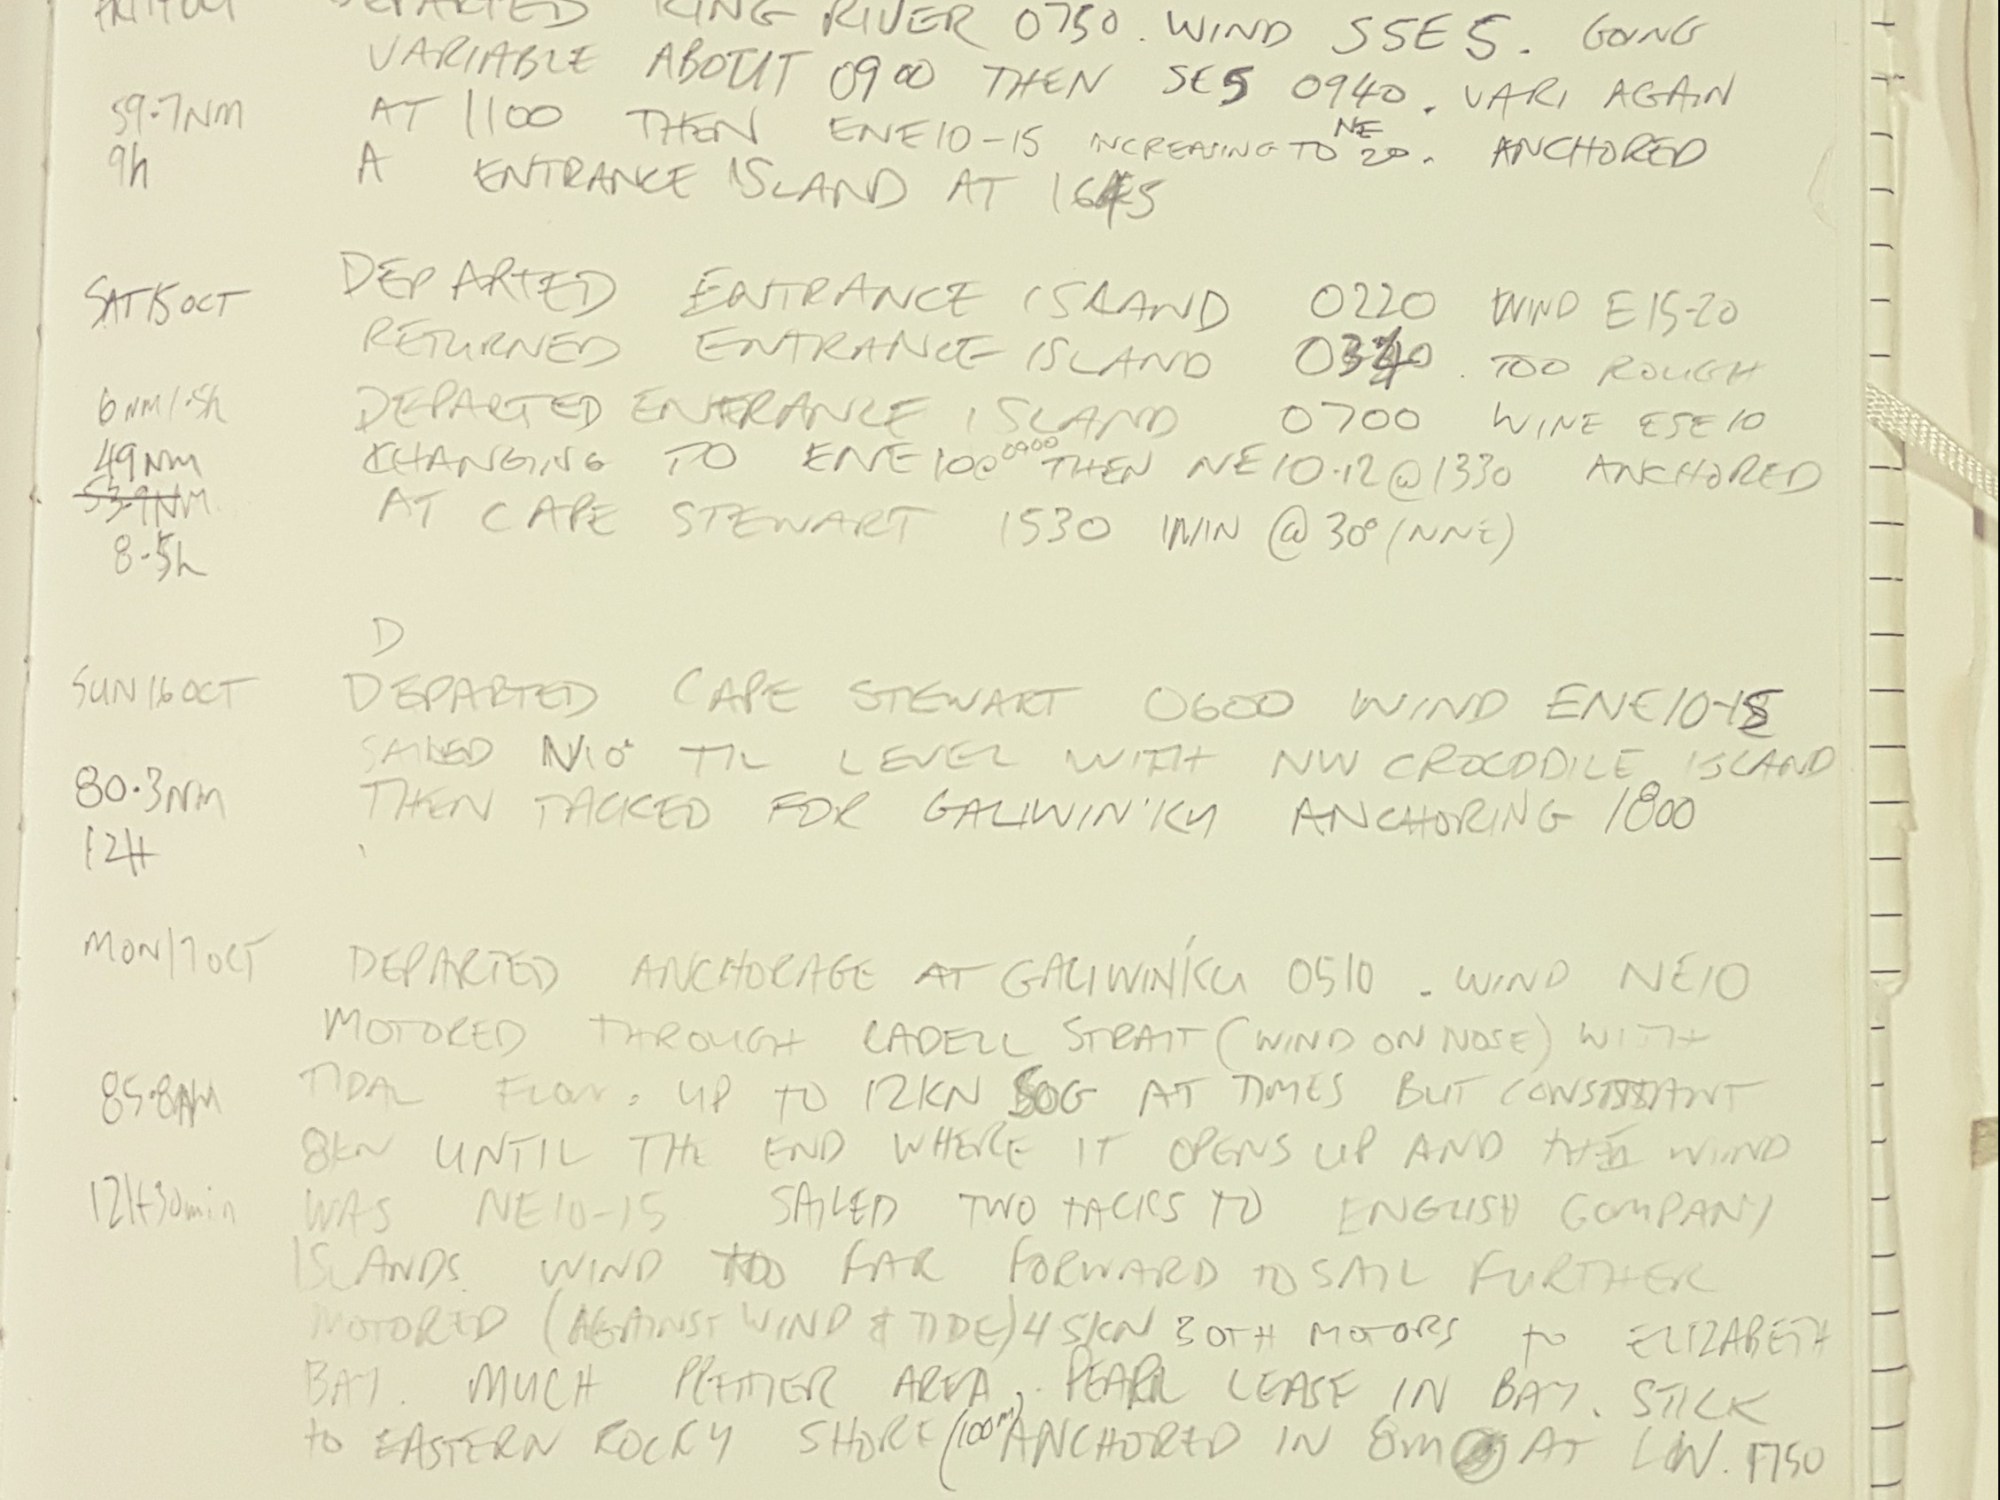 DEPARTED KING RIVER 0750. WIND SSE 5. GOING
VARIABLE ABOUT 0900 THEN SE5 0940. VARI AGAIN
59.7NM AT 1100 THEN ENE 10-15 INCREASING TO NE 20. ANCHORED
9h A ENTRANCE ISLAND AT 1645
SAT 15 OCT DEPARTED ENTRANCE ISLAND 0220 WIND E 15-20
RETURNED ENTRANCE ISLAND 0340. TOO ROUGH
6NM/ DEPARTED ENTRANCE ISLAND 0700 WINE ESE 10
49NM CHANGING TO ENE 10@0900 THEN NE 10-12 @ 1330 ANCHORED
53.9NM AT CAPE STEWART 1530 WIN @ 30° (NNE)
8.5h
D
SUN 16 OCT DEPARTED CAPE STEWART 0600 WIND ENE 10-15
SAILED N10° TIL LEVEL WITH NW CROCODILE ISLAND
80.3NM THEN TACKED FOR GALIWIN'KU ANCHORING 1800
12H
MON 17 OCT DEPARTED ANCHORAGE AT GALIWIN'KU 0510. WIND NE 10
MOTORED THROUGH CADELL STRAIT (WIND ON NOSE) WITH
85.8NM TIDAL FLOW. UP TO 12KN SOG AT TIMES BUT CONSTANT
8KN UNTIL THE END WHERE IT OPENS UP AND THE WIND
12H30min WAS NE 10-15 SAILED TWO TACKS TO ENGLISH COMPANY
ISLANDS. WIND TOO FAR FORWARD TO SAIL FURTHER
MOTORED (AGAINST WIND & TIDE) 4 5KN BOTH MOTORS TO ELIZABETH
BAY. MUCH PRETTIER AREA. PEARL LEASE IN BAY. STICK
TO EASTERN ROCKY SHORE (100M) ANCHORED IN 8m AT LW. 1750